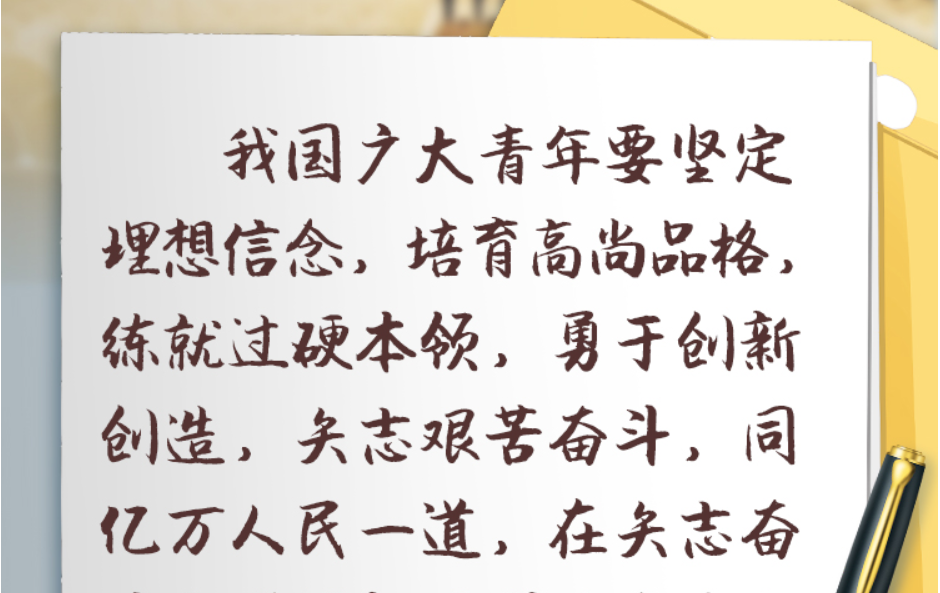 我国广大青年要坚定
理想信念，培育高尚品格，
练就过硬本领，勇于创新
创造，矢志艰苦奋斗，同
亿万人民一道，在矢志奋